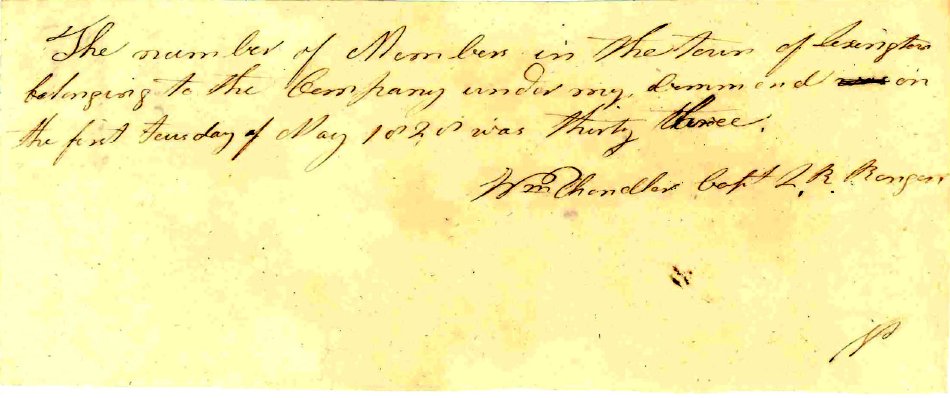 The number of Members in the town of Lexington
belonging to the Company under my, Commond was on
the first Teusday of May 1828 was thirty three.
Wm Chandler Capt L. R. Rangers